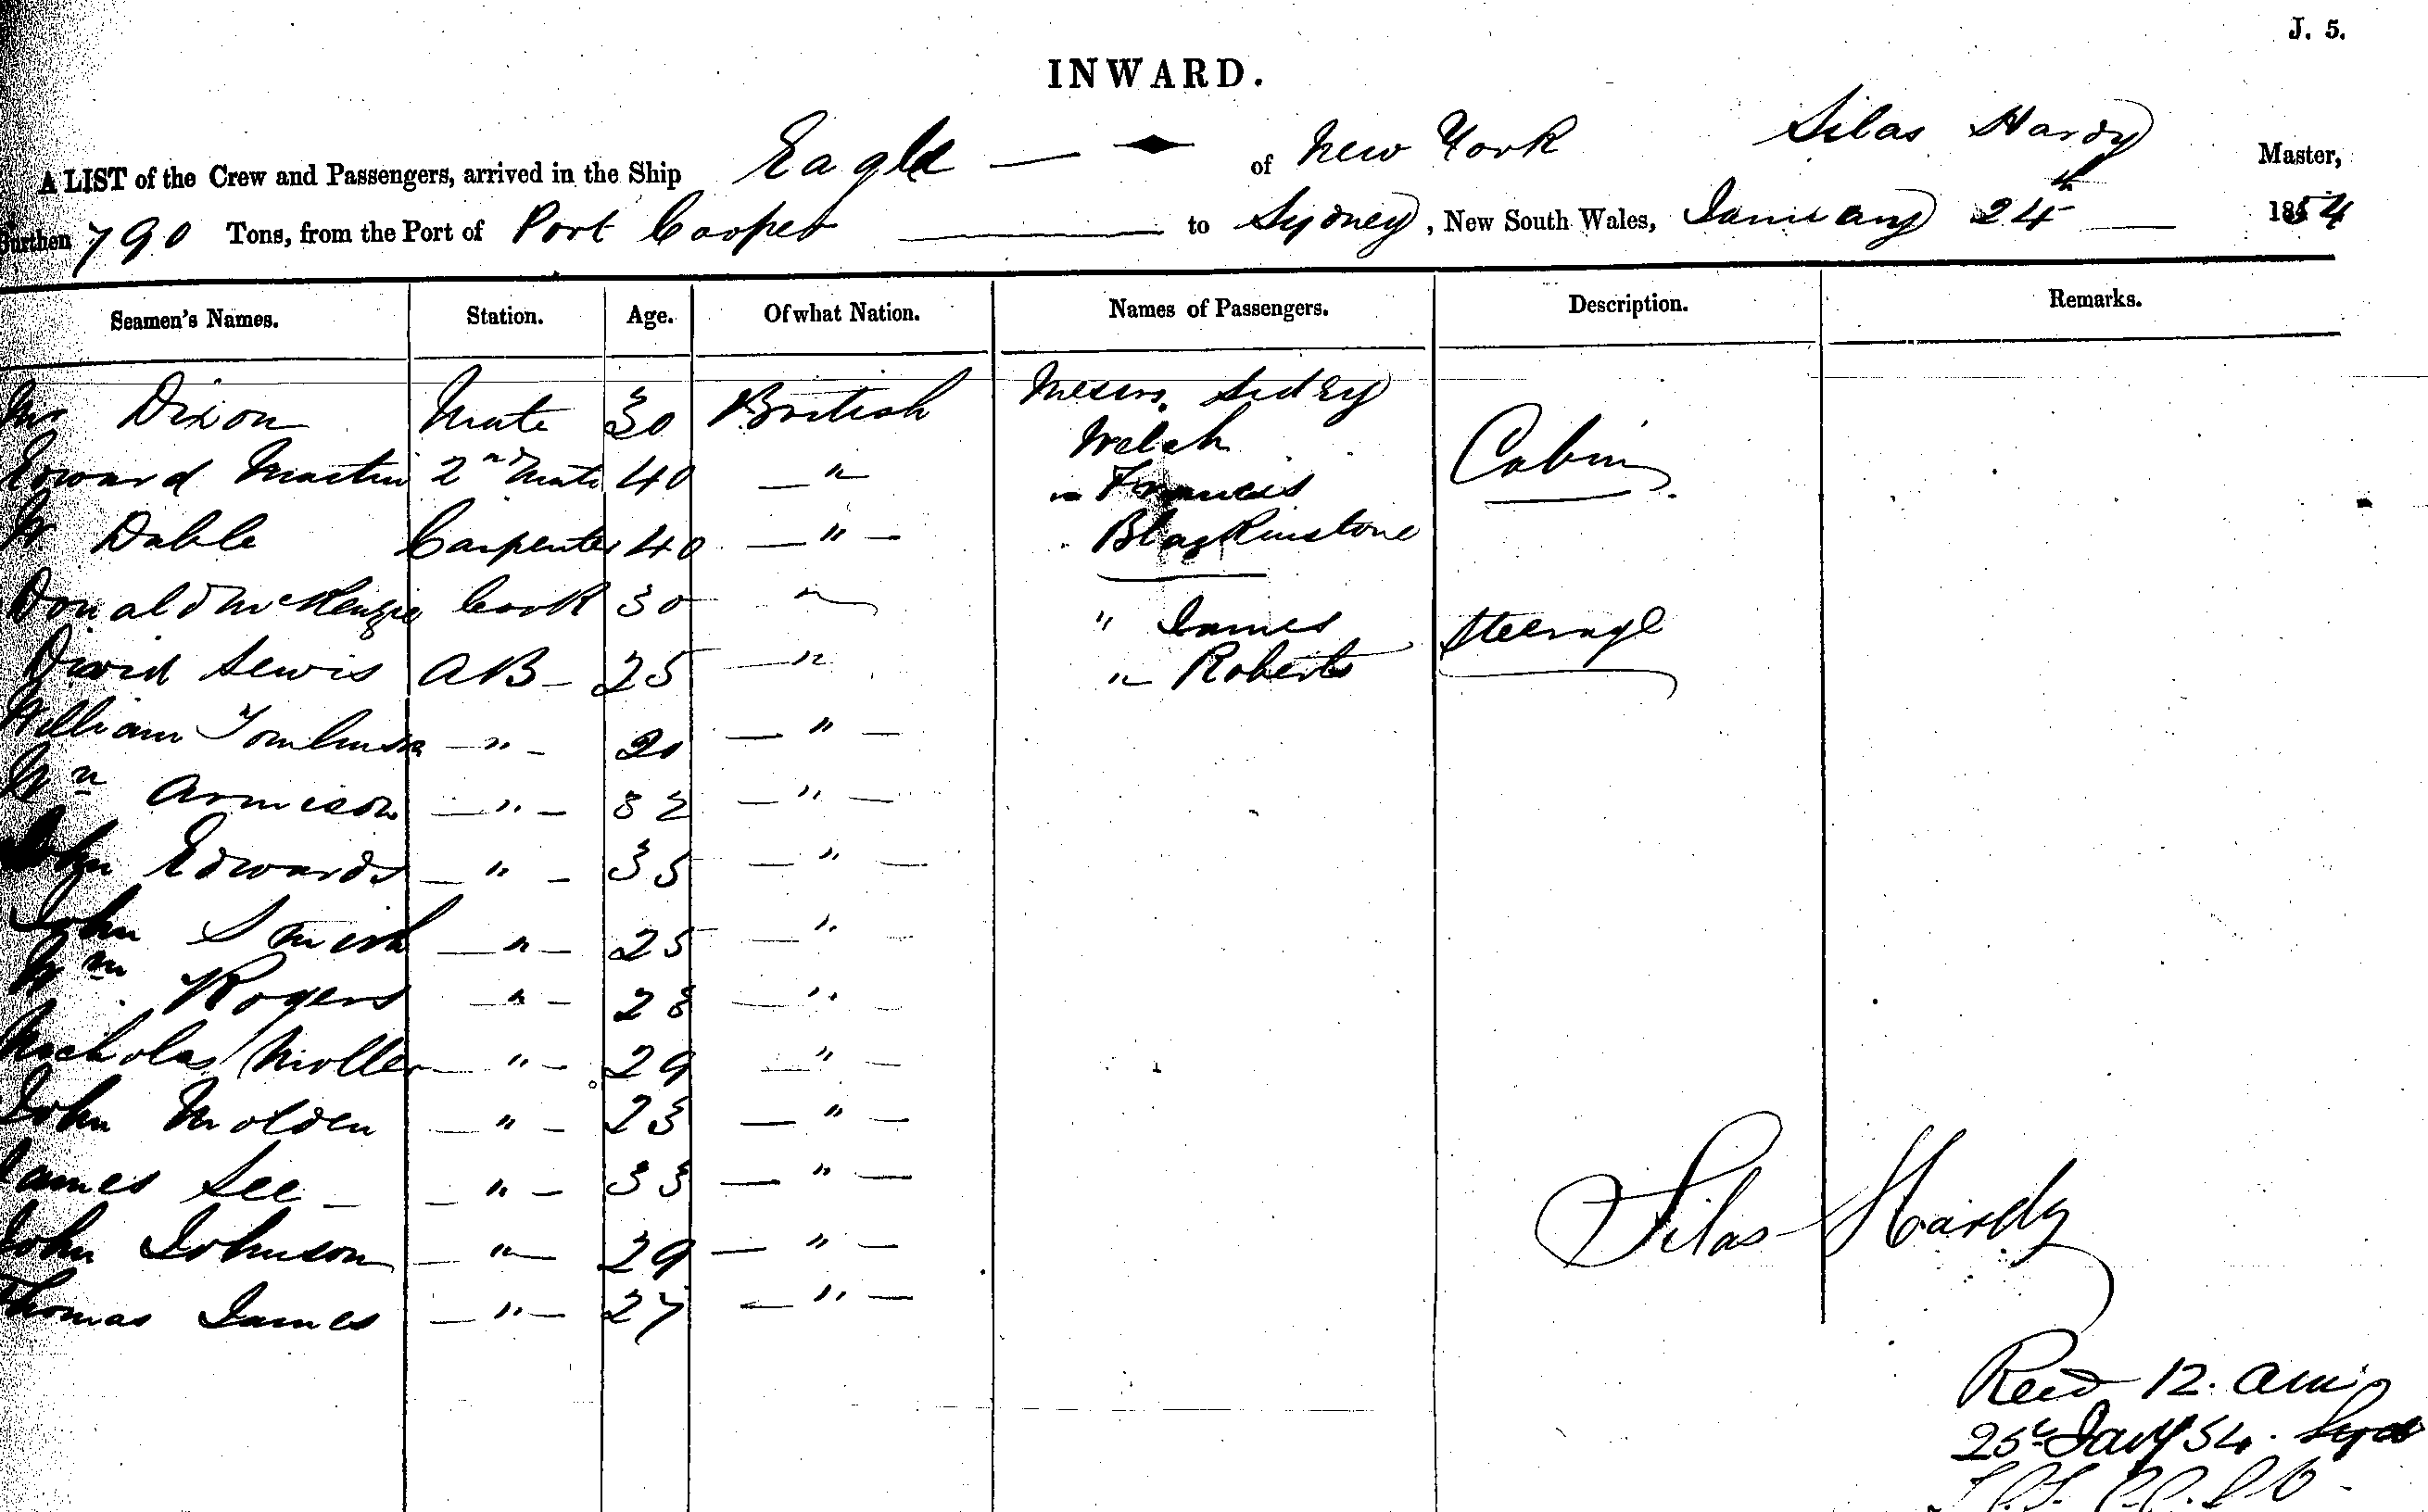 J. 5.
INWARD.
A LIST of the Crew and Passengers, arrived in the Ship Eagle — of New York Silas Hardy Master,
Burthen 790 Tons, from the Port of Port Cooper — to Sydney, New South Wales, January 24th — 1854
Seamen's Names. Station. Age. Of what Nation. Names of Passengers. Description. Remarks.
Mr Dixon Mate 30 British Messrs. Sidey
Welsh Cabin
Edward Martin 2nd Mate 40 — " " Francis
Dable Carpenter 40 — " — Blackinstone
Donald McKenzie Cook 30 " " James Steerage
David Lewis AB — 25 — " " Roberts
William Tomlinson — " — 20 — " —
Wm Armison — " — 32 — " —
John Edwards — " — 35 — " —
John Smith — " — 25 — " —
Wm Rogers — " — 28 — " —
Nicholas Moller — " — 29 — " —
John Molden — " — 23 — " —
James Lee — — " — 33 — " —
John Johnson — " — 29 — " —
Thomas James — " — 27 — " —
Silas Hardy
Recd 12. am
25th Jany 54.